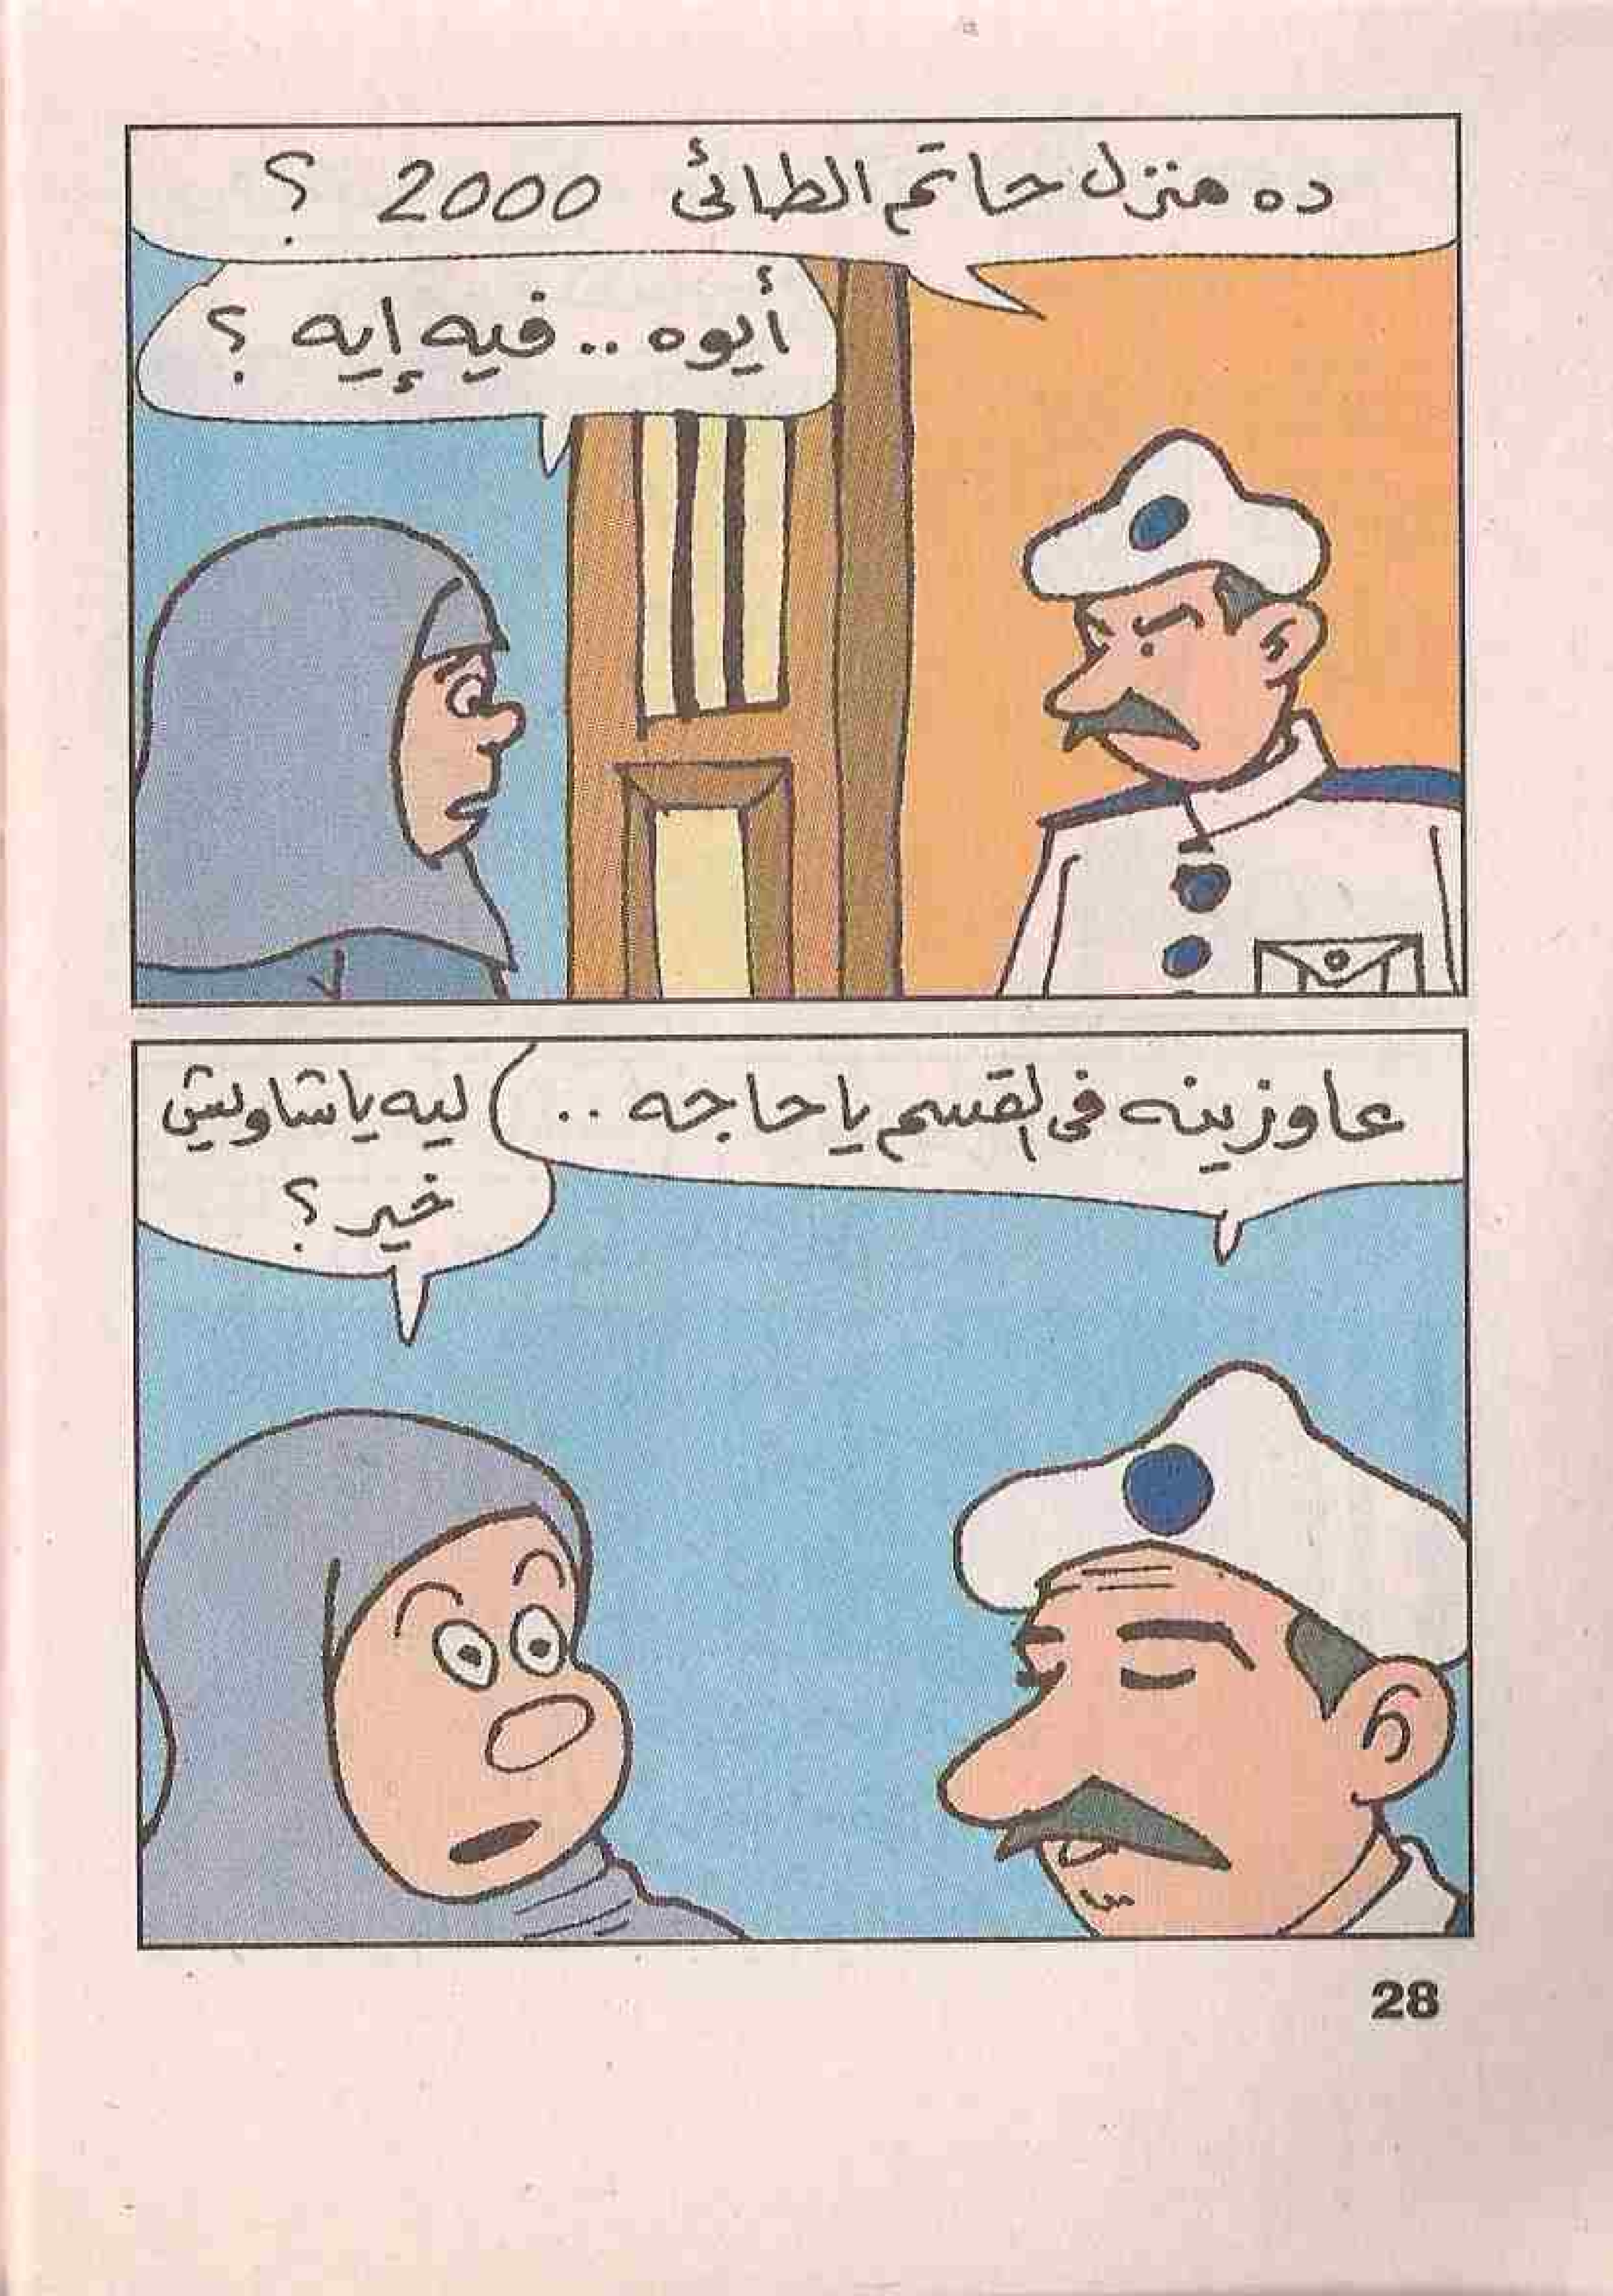 ده منزل حاتم الطائى 2000 ؟
أيوه .. فيه إيه ؟
عاوزينه فى القسم يا حاجه ..
ليه يا شاويش
خير ؟
28